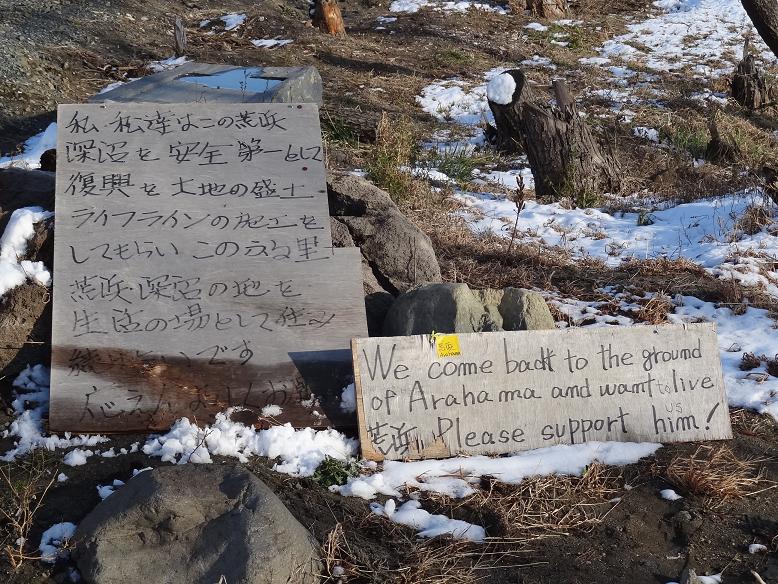 私・私達はこの荒浜
深沼を安全第一として
復興を土地の盛土
ライフラインの施工を
してもらいこの古里
荒浜・深沼の地を
生活の場として住み
続けたいです
応えんよろしくお
荒浜
ARAHAMA
We come back to the ground
of Arahama and want to live
荒浜 Please support him! us